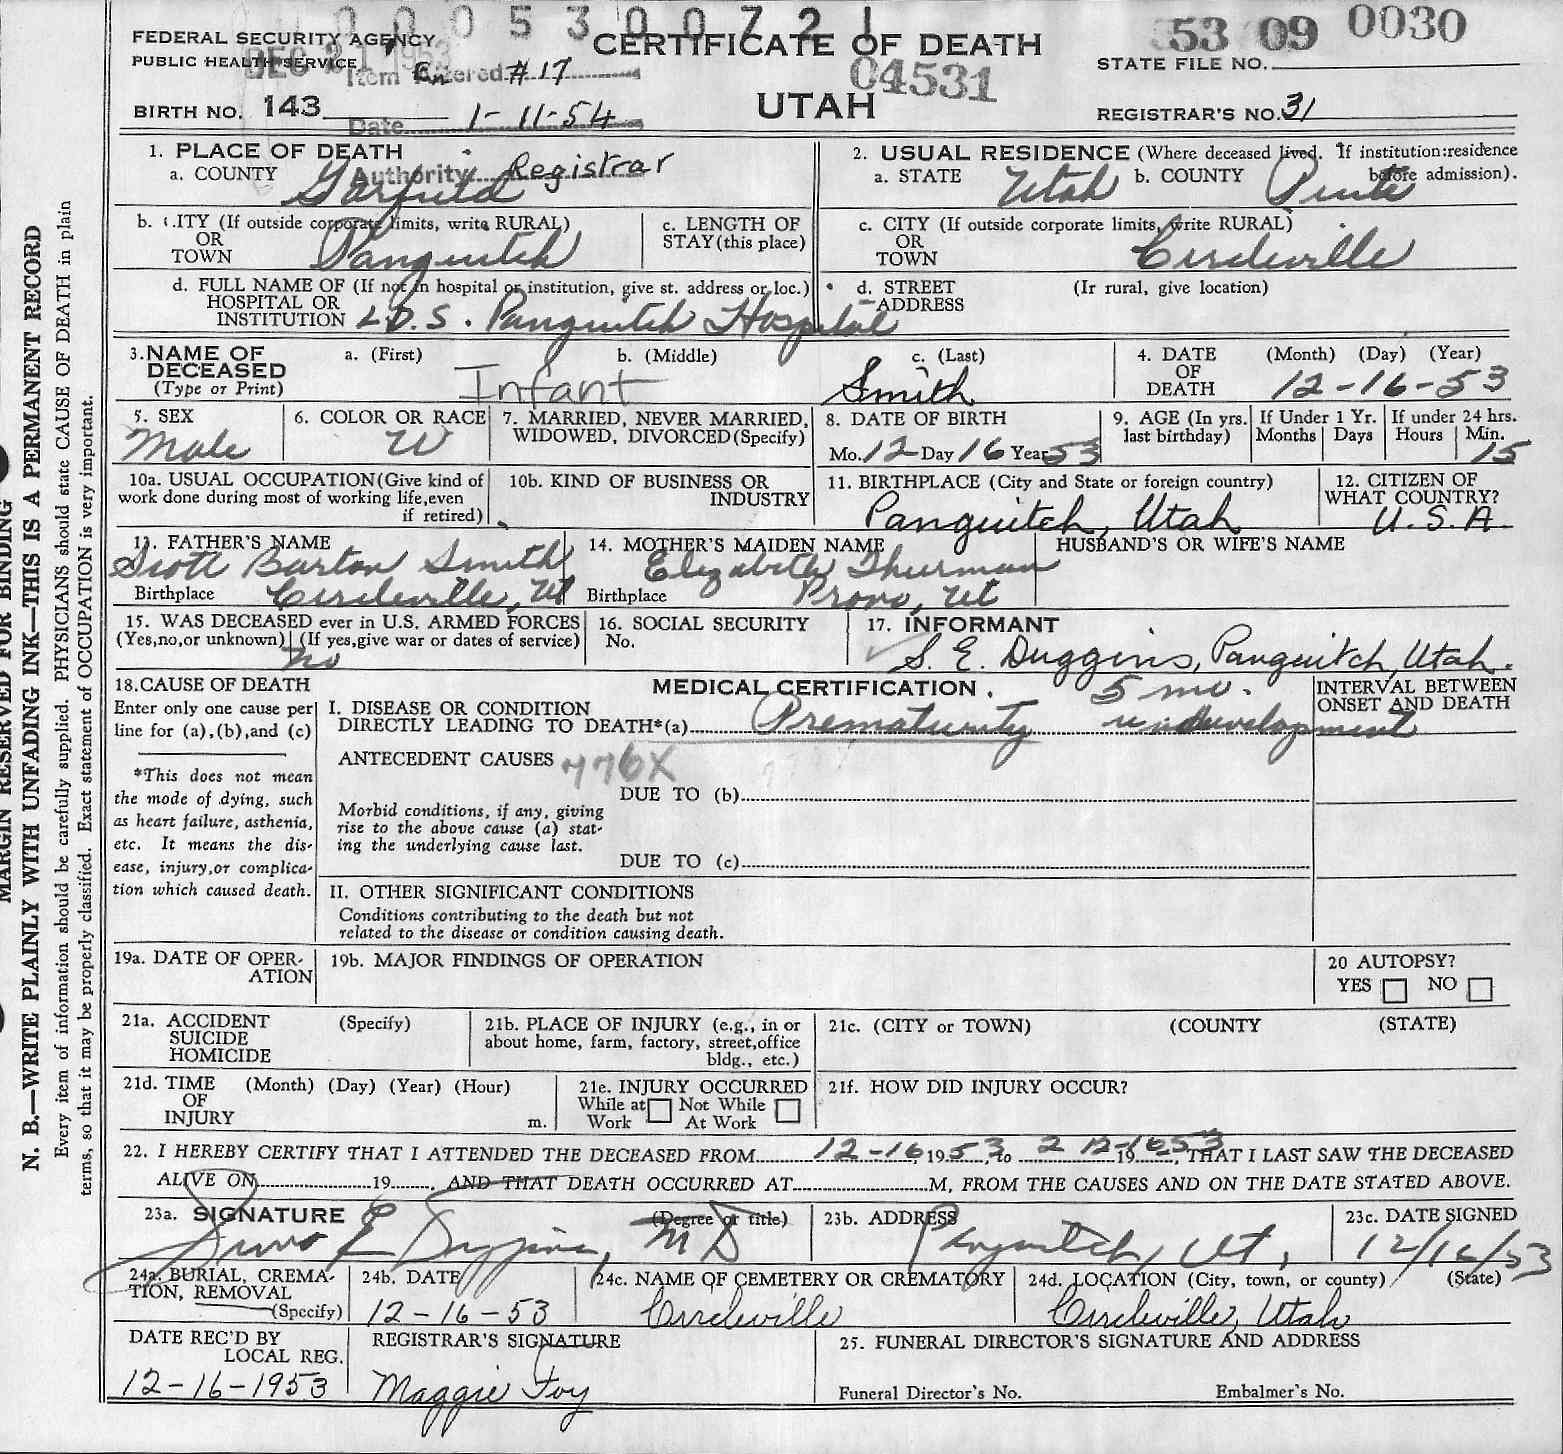 0 0 0 0 5 3 0 0 7 2 1
FEDERAL SECURITY AGENCY
PUBLIC HEALTH SERVICE
DEC 21 1953
Item Entered #17
CERTIFICATE OF DEATH
04531
UTAH
53 09 0030
STATE FILE NO.
BIRTH NO. 143
Date 1-11-54
REGISTRAR'S NO. 31
1. PLACE OF DEATH
Authority Registrar
a. COUNTY Garfield
2. USUAL RESIDENCE (Where deceased lived. If institution: residence before admission).
a. STATE Utah b. COUNTY Piute
b. CITY (If outside corporate limits, write RURAL)
OR
TOWN Panguitch
c. LENGTH OF
STAY (this place)
c. CITY (If outside corporate limits, write RURAL)
OR
TOWN Circleville
d. FULL NAME OF (If not in hospital or institution, give st. address or loc.)
HOSPITAL OR
INSTITUTION L.D.S. Panguitch Hospital
d. STREET (Ir rural, give location)
ADDRESS
3. NAME OF DECEASED
(Type or Print)
a. (First) b. (Middle) c. (Last)
Infant Smith
4. DATE OF DEATH (Month) (Day) (Year)
12-16-53
5. SEX
Male
6. COLOR OR RACE
W
7. MARRIED, NEVER MARRIED,
WIDOWED, DIVORCED (Specify)
8. DATE OF BIRTH
Mo. 12 Day 16 Year 53
9. AGE (In yrs. last birthday)
If Under 1 Yr.
Months Days
If under 24 hrs.
Hours Min.
15
10a. USUAL OCCUPATION (Give kind of
work done during most of working life, even
if retired)
10b. KIND OF BUSINESS OR
INDUSTRY
11. BIRTHPLACE (City and State or foreign country)
Panguitch, Utah
12. CITIZEN OF
WHAT COUNTRY?
U.S.A.
13. FATHER'S NAME
Scott Barton Smith
Birthplace Circleville, Ut
14. MOTHER'S MAIDEN NAME
Elizabeth Thurman
Birthplace Provo, Ut
HUSBAND'S OR WIFE'S NAME
15. WAS DECEASED ever in U.S. ARMED FORCES
(Yes, no, or unknown) (If yes, give war or dates of service)
no
16. SOCIAL SECURITY
No.
17. INFORMANT
S. E. Duggins, Panguitch, Utah.
18. CAUSE OF DEATH
Enter only one cause per
line for (a), (b), and (c)
MEDICAL CERTIFICATION.
I. DISEASE OR CONDITION
DIRECTLY LEADING TO DEATH*(a) Prematurity 5 mo. undevelopment
INTERVAL BETWEEN
ONSET AND DEATH
*This does not mean
the mode of dying, such
as heart failure, asthenia,
etc. It means the dis-
ease, injury, or complica-
tion which caused death.
ANTECEDENT CAUSES 776X
DUE TO (b)
Morbid conditions, if any, giving
rise to the above cause (a) stat-
ing the underlying cause last.
DUE TO (c)
II. OTHER SIGNIFICANT CONDITIONS
Conditions contributing to the death but not
related to the disease or condition causing death.
19a. DATE OF OPER-
ATION
19b. MAJOR FINDINGS OF OPERATION
20 AUTOPSY?
YES NO
21a. ACCIDENT (Specify)
SUICIDE
HOMICIDE
21b. PLACE OF INJURY (e.g., in or
about home, farm, factory, street, office
bldg., etc.)
21c. (CITY or TOWN) (COUNTY (STATE)
21d. TIME (Month) (Day) (Year) (Hour)
OF
INJURY m.
21e. INJURY OCCURRED
While at Work Not While At Work
21f. HOW DID INJURY OCCUR?
22. I HEREBY CERTIFY THAT I ATTENDED THE DECEASED FROM 12-16, 1953, to 12-16 1953, THAT I LAST SAW THE DECEASED
ALIVE ON 19 , AND THAT DEATH OCCURRED AT M, FROM THE CAUSES AND ON THE DATE STATED ABOVE.
23a. SIGNATURE (Degree or title)
E Duggins, MD
23b. ADDRESS
Panguitch, Ut,
23c. DATE SIGNED
12/16/53
24a. BURIAL, CREMA-
TION, REMOVAL
(Specify)
24b. DATE
12-16-53
24c. NAME OF CEMETERY OR CREMATORY
Circleville
24d. LOCATION (City, town, or county) (State)
Circleville, Utah
DATE REC'D BY
LOCAL REG.
12-16-1953
REGISTRAR'S SIGNATURE
Maggie Foy
25. FUNERAL DIRECTOR'S SIGNATURE AND ADDRESS
Funeral Director's No. Embalmer's No.
MARGIN RESERVED FOR BINDING
N. B.—WRITE PLAINLY WITH UNFADING INK—THIS IS A PERMANENT RECORD
Every item of information should be carefully supplied. PHYSICIANS should state CAUSE OF DEATH in plain
terms, so that it may be properly classified. Exact statement of OCCUPATION is very important.